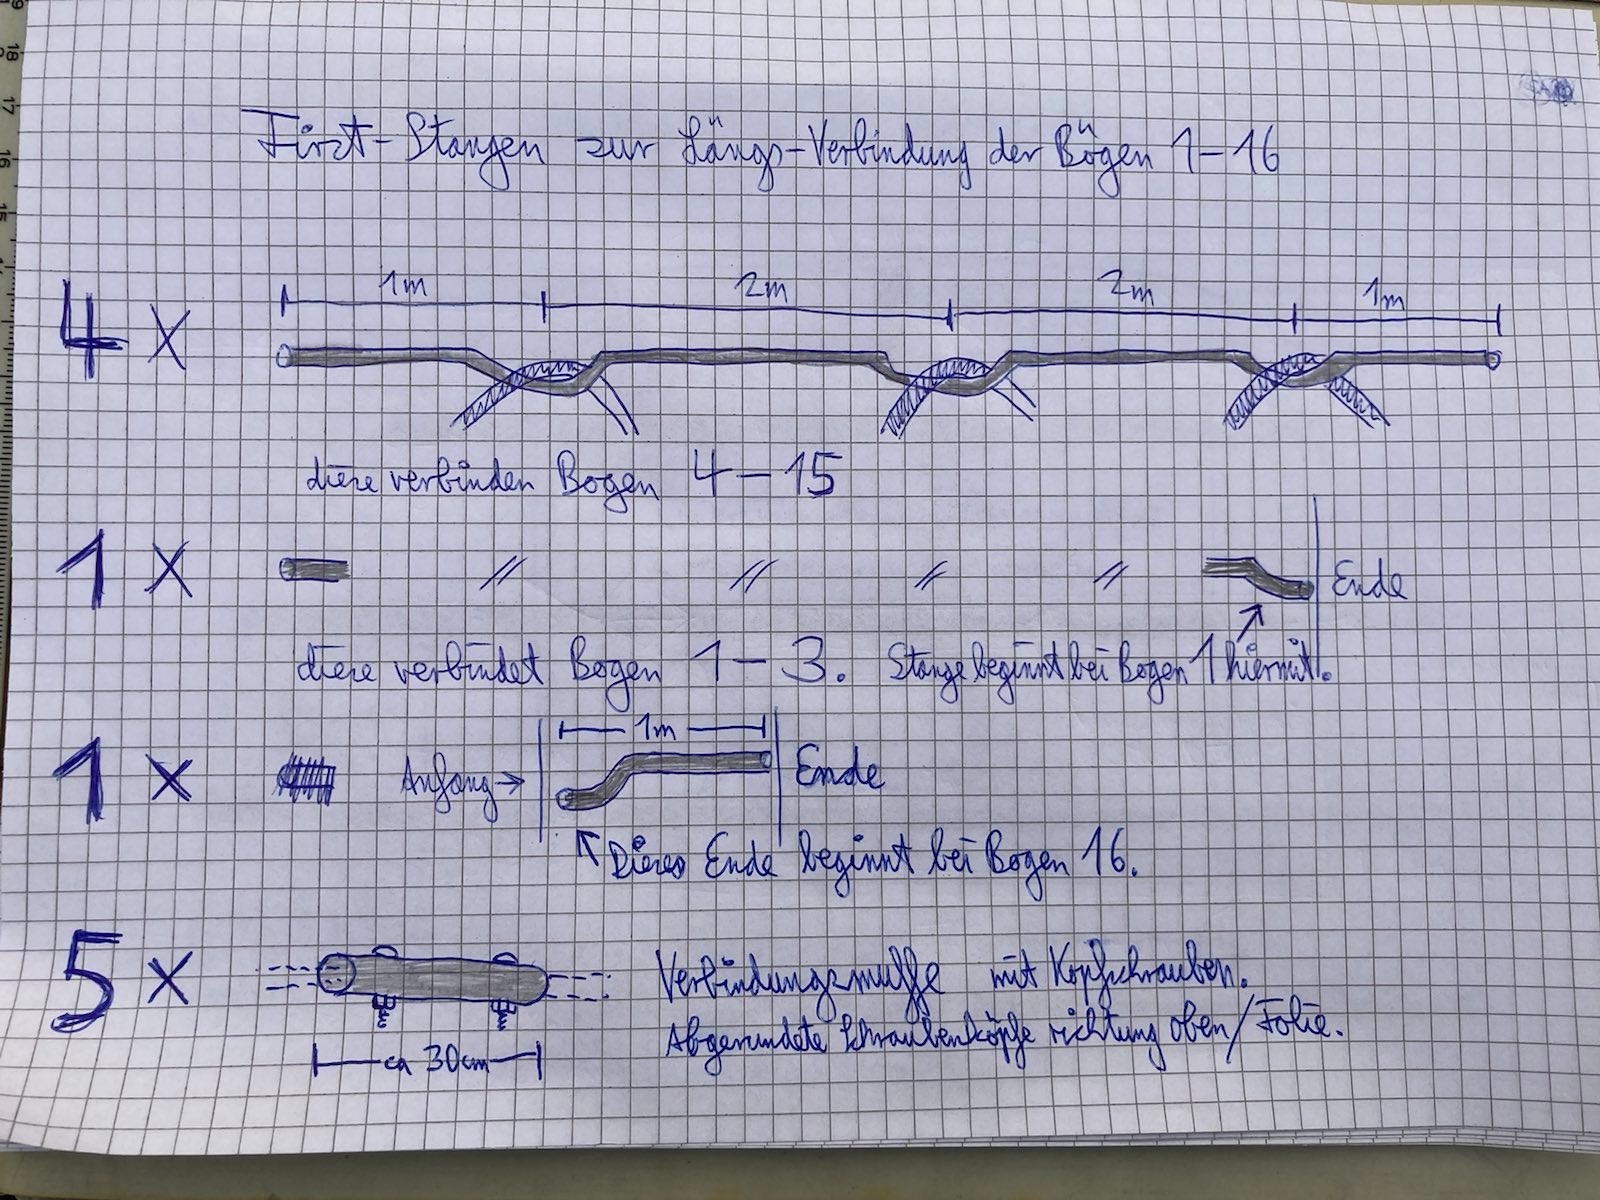 First-Stangen zur Längs-Verbindung der Bögen 1-16
1m 2m 2m 1m
4 x
diese verbinden Bogen 4-15
1 x // // // // Ende
diese verbindet Bogen 1-3. Stange beginnt bei Bogen 1 hiermit.
1m
1 x Anfang → Ende
Dieses Ende beginnt bei Bogen 16.
5 x Verbindungsmuffe mit Kopfschrauben.
Abgerundete Schraubenköpfe richtung oben/Folie.
ca 30cm
18
17
16
15